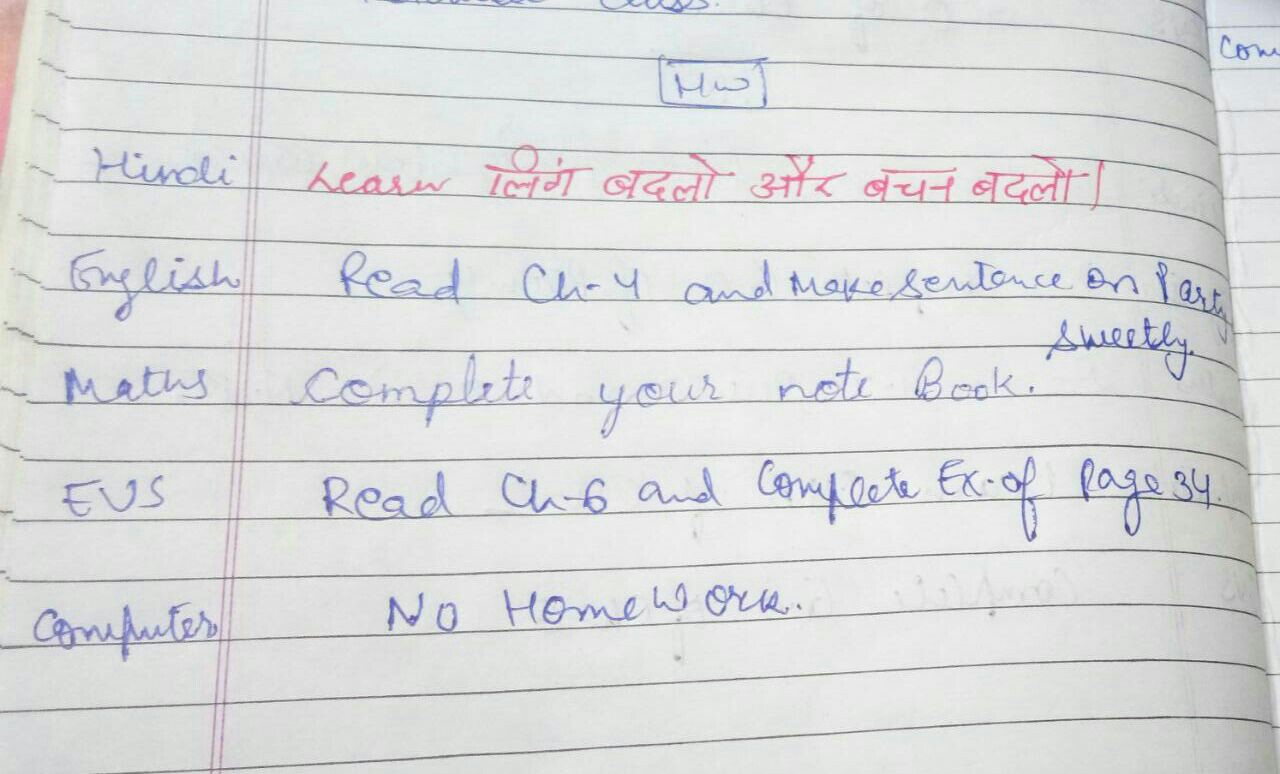 Class.
Com
HW
Hindi Learn लिंग बदलो और बचन बदलो।
English Read Ch-4 and Make sentence on Party
sweetly.
Maths Complete your note Book.
EVS Read Ch-6 and Complete Ex. of Page 34.
Computer No Homework.